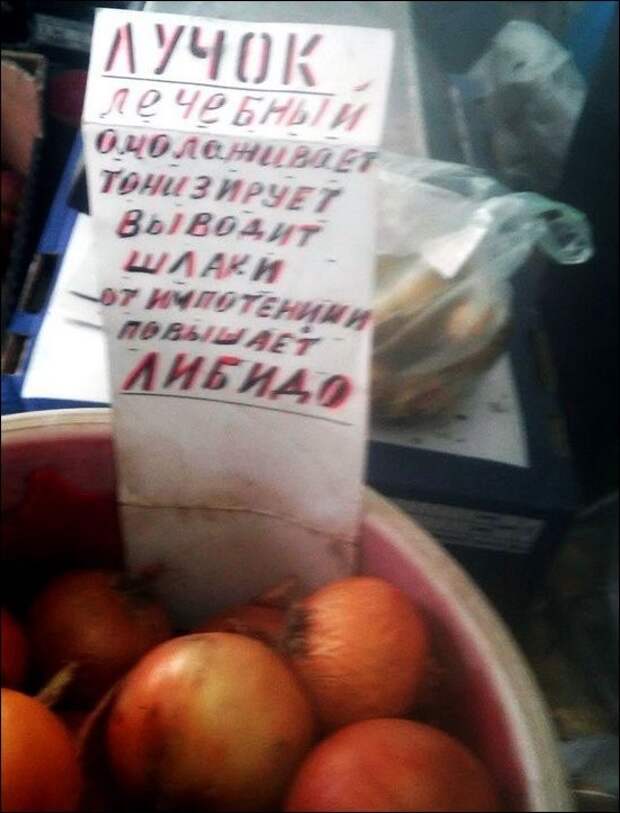 ЛУЧОК
ЛЕЧЕБНЫЙ
ОМОЛАЖИВАЕТ
ТОНИЗИРУЕТ
ВЫВОДИТ
ШЛАКИ
ОТ ИМПОТЕНЦИИ
ПОВЫШАЕТ
ЛИБИДО